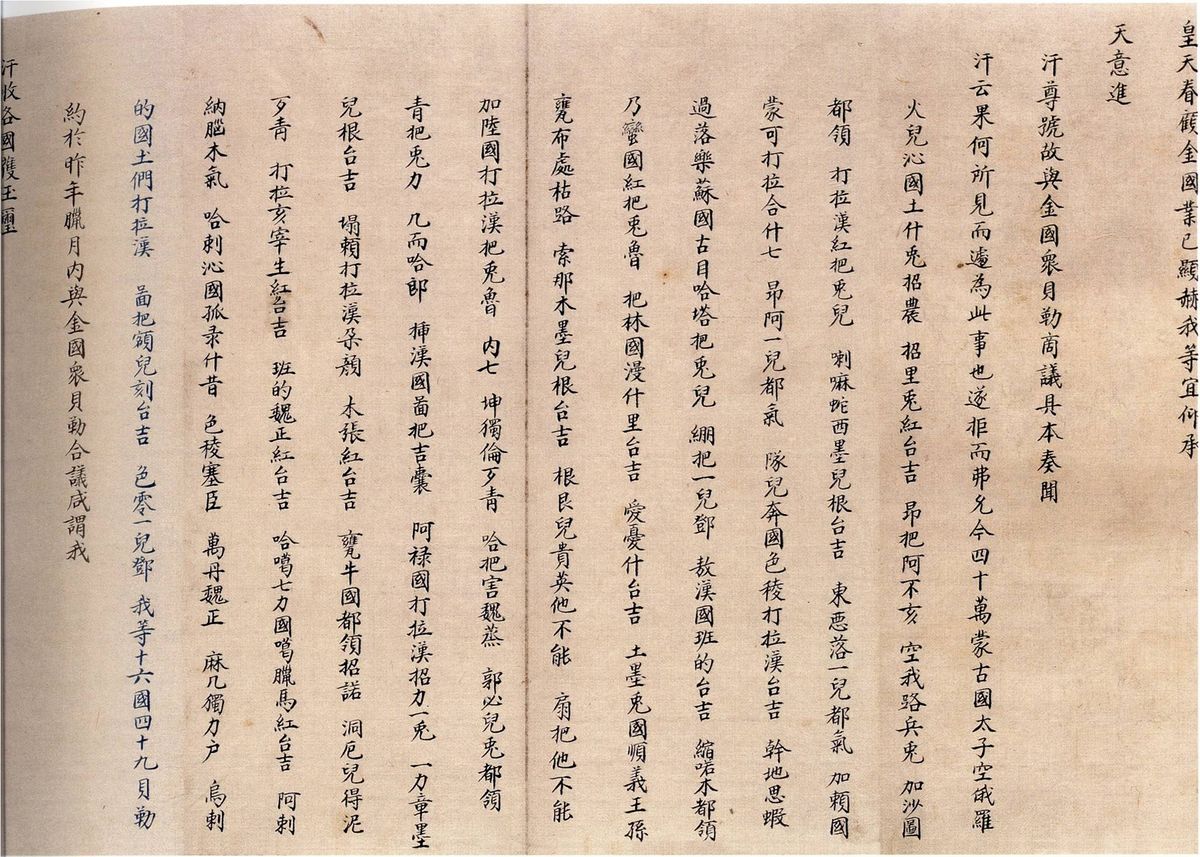 皇天眷顧金國業已顯赫我等宜仰承
天意進
汗尊號故與金國眾貝勒商議具本奏聞
汗云果何所見而遽為此事也遂拒而弗允今四十萬蒙古國太子空俄羅
火兒沁國土什兎招農 招里兎紅台吉 昻把阿不亥 空我路兵兎 加沙圖
都領 打拉漢紅把兎兒 喇嘛蛇西墨兒根台吉 東悪落一兒都氣 加頼國
蒙可打拉合什七 昻阿一兒都氣 隊兒奔國色稜打拉漢台吉 幹地思蝦
過落樂蘇國古目哈塔把兎兒 綳把一兒鄧 敖漢國班的台吉 縮喏木都領
乃蠻國紅把兎魯 把林國漫什里台吉 愛憂什台吉 土墨兎國順義王孫
甕布處枯路 索那木墨兒根台吉 根艮兒貴英他不能 扇把他不能
加陸國打拉漢把兎魯 内七 坤獨倫歹青 哈把害魏蒸 郭必兒兎都領
青把兎力 几而哈郎 挿漢國啚把吉囊 阿祿國打拉漢招力兎 一力章墨
兒根台吉 塌頼打拉漢朶顔 木張紅台吉 甕牛國都領招諾 洞厄兒得泥
歹青 打拉亥宰生紅台吉 班的魏正紅台吉 哈噶七力國噶臘馬紅台吉 阿剌
納腦木氣 哈剌沁國孤录什昔 色稜塞臣 萬丹魏正 麻几獨力户 烏剌
的國土們打拉漢 啚把額兒刻台吉 色零一兒鄧 我等十六國四十九貝勒
約於昨年臘月内與金國眾貝勒合議咸謂我
汗收各國獲玉璽